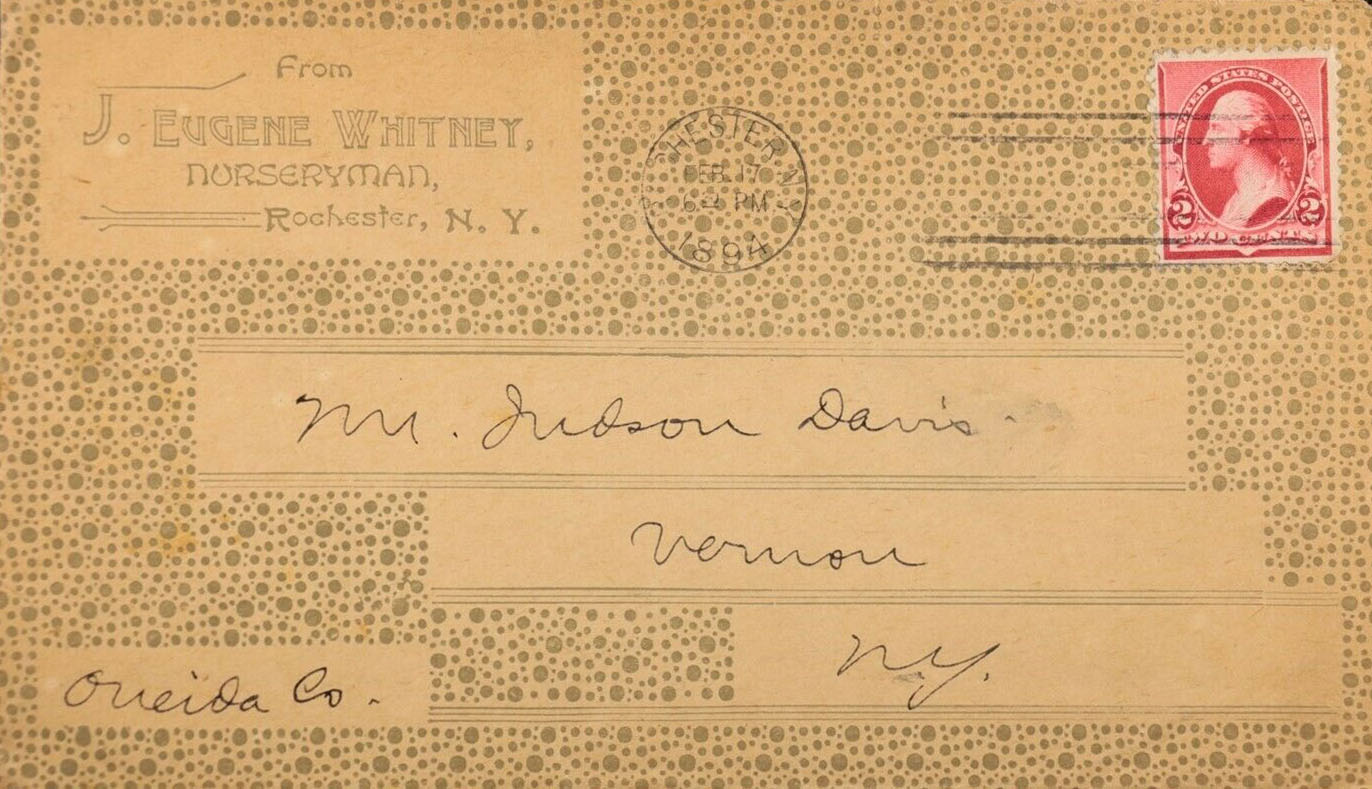 From
J. EUGENE WHITNEY,
NURSERYMAN,
Rochester, N. Y.
CHESTER, N.Y.
FEB 17
PM
1894
UNITED STATES POSTAGE
2 2
TWO CENTS
Mr. Judson Davis.
Vernon
N.Y.
Oneida Co.